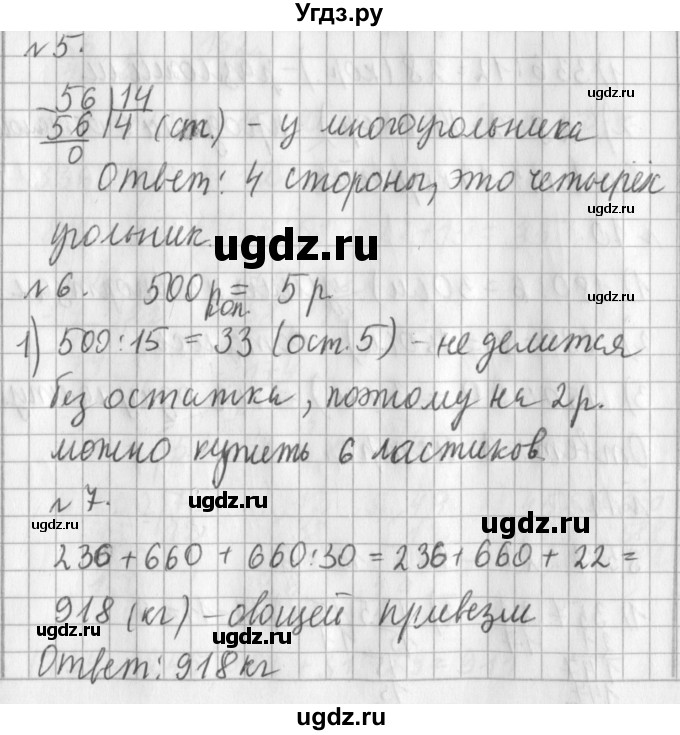 Угдз.ру
№5.
56 | 14
56 | 4 (ст.) - у многоугольника
0
Ответ: 4 стороны, это четырёх
угольник.
ugdz.ru
№6. 500 р = 5 р
коп.
1) 500:15 = 33 (ост. 5) - не делится
без остатка, поэтому на 2р.
можно купить 6 ластиков
№7.
ugdz.ru
ugdz.ru
ugdz.ru
236 + 660 + 660:30 = 236 + 660 + 22 =
918 (кг) - овощей привезли
ugdz.ru
ugdz.ru
Ответ: 918 кг
ugdz.ru
ugdz.ru
ugdz.ru
ugdz.ru